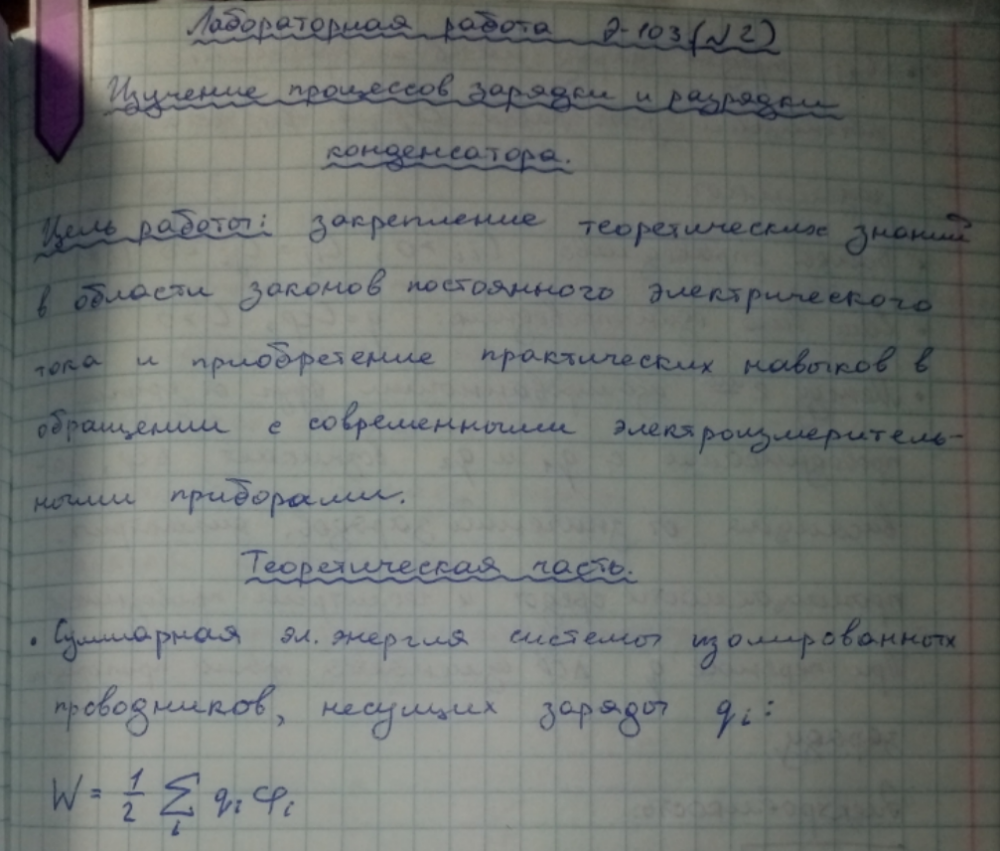 Лабораторная работа Э-103 (№2)
Изучение процессов зарядки и разрядки
конденсатора.
Цель работы: закрепление теоретических знаний
в области законов постоянного электрического
тока и приобретение практических навыков в
обращении с современными электроизмеритель-
ными приборами.
Теоретическая часть.
• Суммарная эл. энергия системы изолированных
проводников, несущих заряды qᵢ:
W = 1/2 ∑ᵢ qᵢ φᵢ